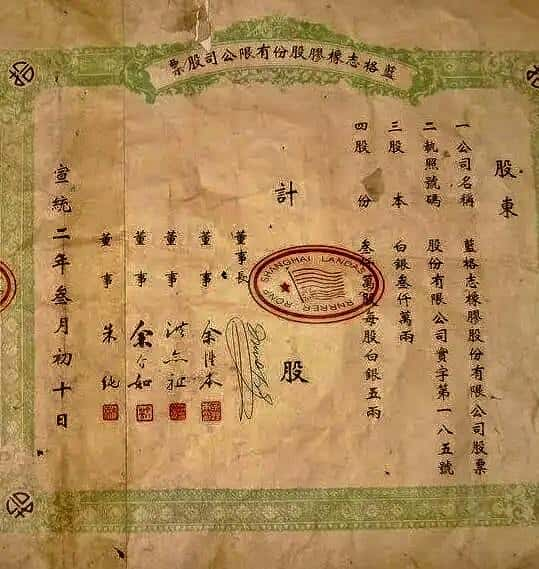 藍格志橡膠股份有限公司股票
股東
一公司名稱 藍格志橡膠股份有限公司股票
二執照號碼 股份有限公司實字第一八五號
三股本 白銀叁仟萬兩
四股份 叁仟萬股每股白銀五兩
計 股
SHANGHAI LANDAS
RNRRER RONS
董事長
董事 余
董事 洪
董事 余介如
董事 朱純
宣統二年叁月初十日